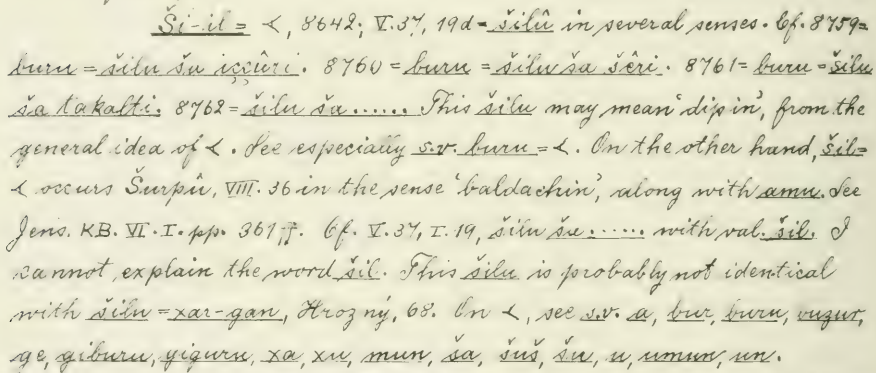 Ši-il = 𒌋, 8642; V. 37, 19d = šilû in several senses. Cf. 8759 =
buru = šilu ša iççûri. 8760 = buru = šilu ša šêri. 8761 = buru = šilu
ša takalti. 8762 = šilu ša ...... This šilu may mean 'dip in', from the
general idea of 𒌋. See especially s.v. buru = 𒌋. On the other hand, šil =
𒌋 occurs Šurpû, VIII. 36 in the sense 'baldachin', along with amu. See
Jens. KB. VI. I. pp. 361, ff. Cf. V. 37, I. 19, šilu ša ...... with val. šil. I
cannot explain the word šil. This šilu is probably not identical
with šilu = xar-gan, Hrozný, 68. On 𒌋, see s.v. a, bur, buru, vuzur,
ge, giburu, giguru, xa, xu, mun, ša, šuš, šu, u, umun, un.